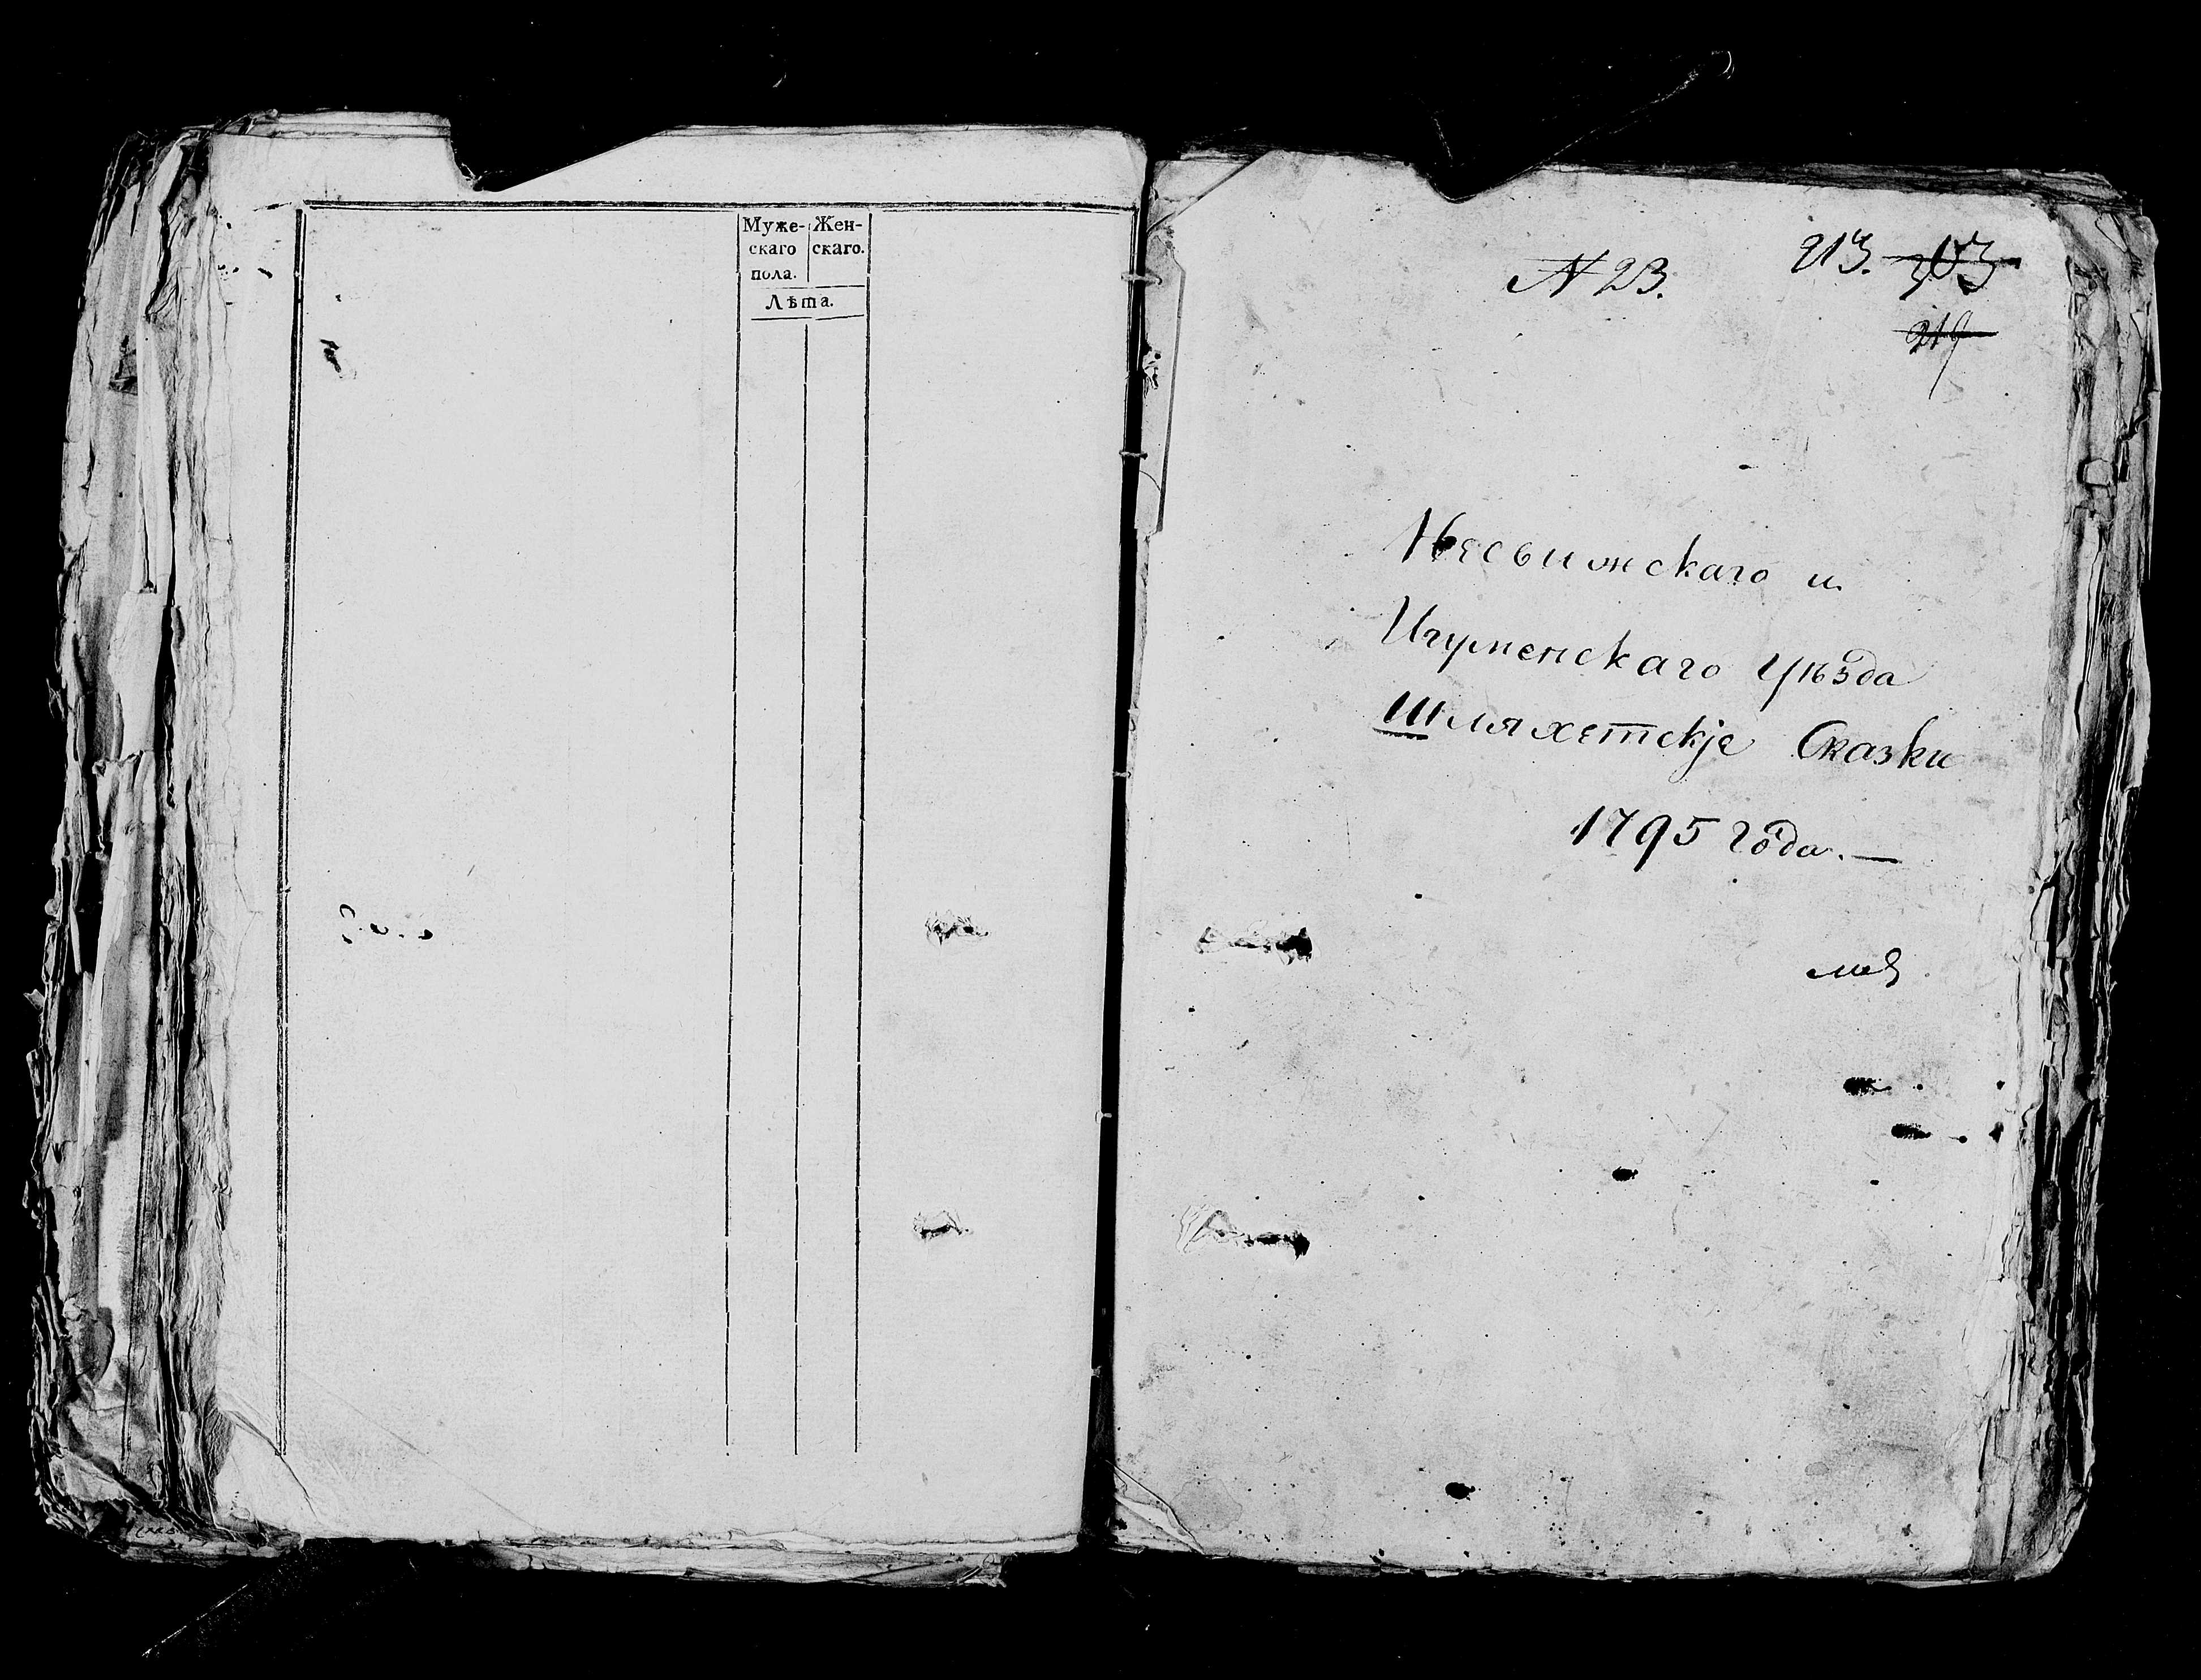 Муже- Жен-
скаго скаго.
пола.
Лѣта.
№ 23.
213. 303
219
Несвижскаго и
Игуменскаго Уѣзда
Шляхетскје Сказки
1795 года. —